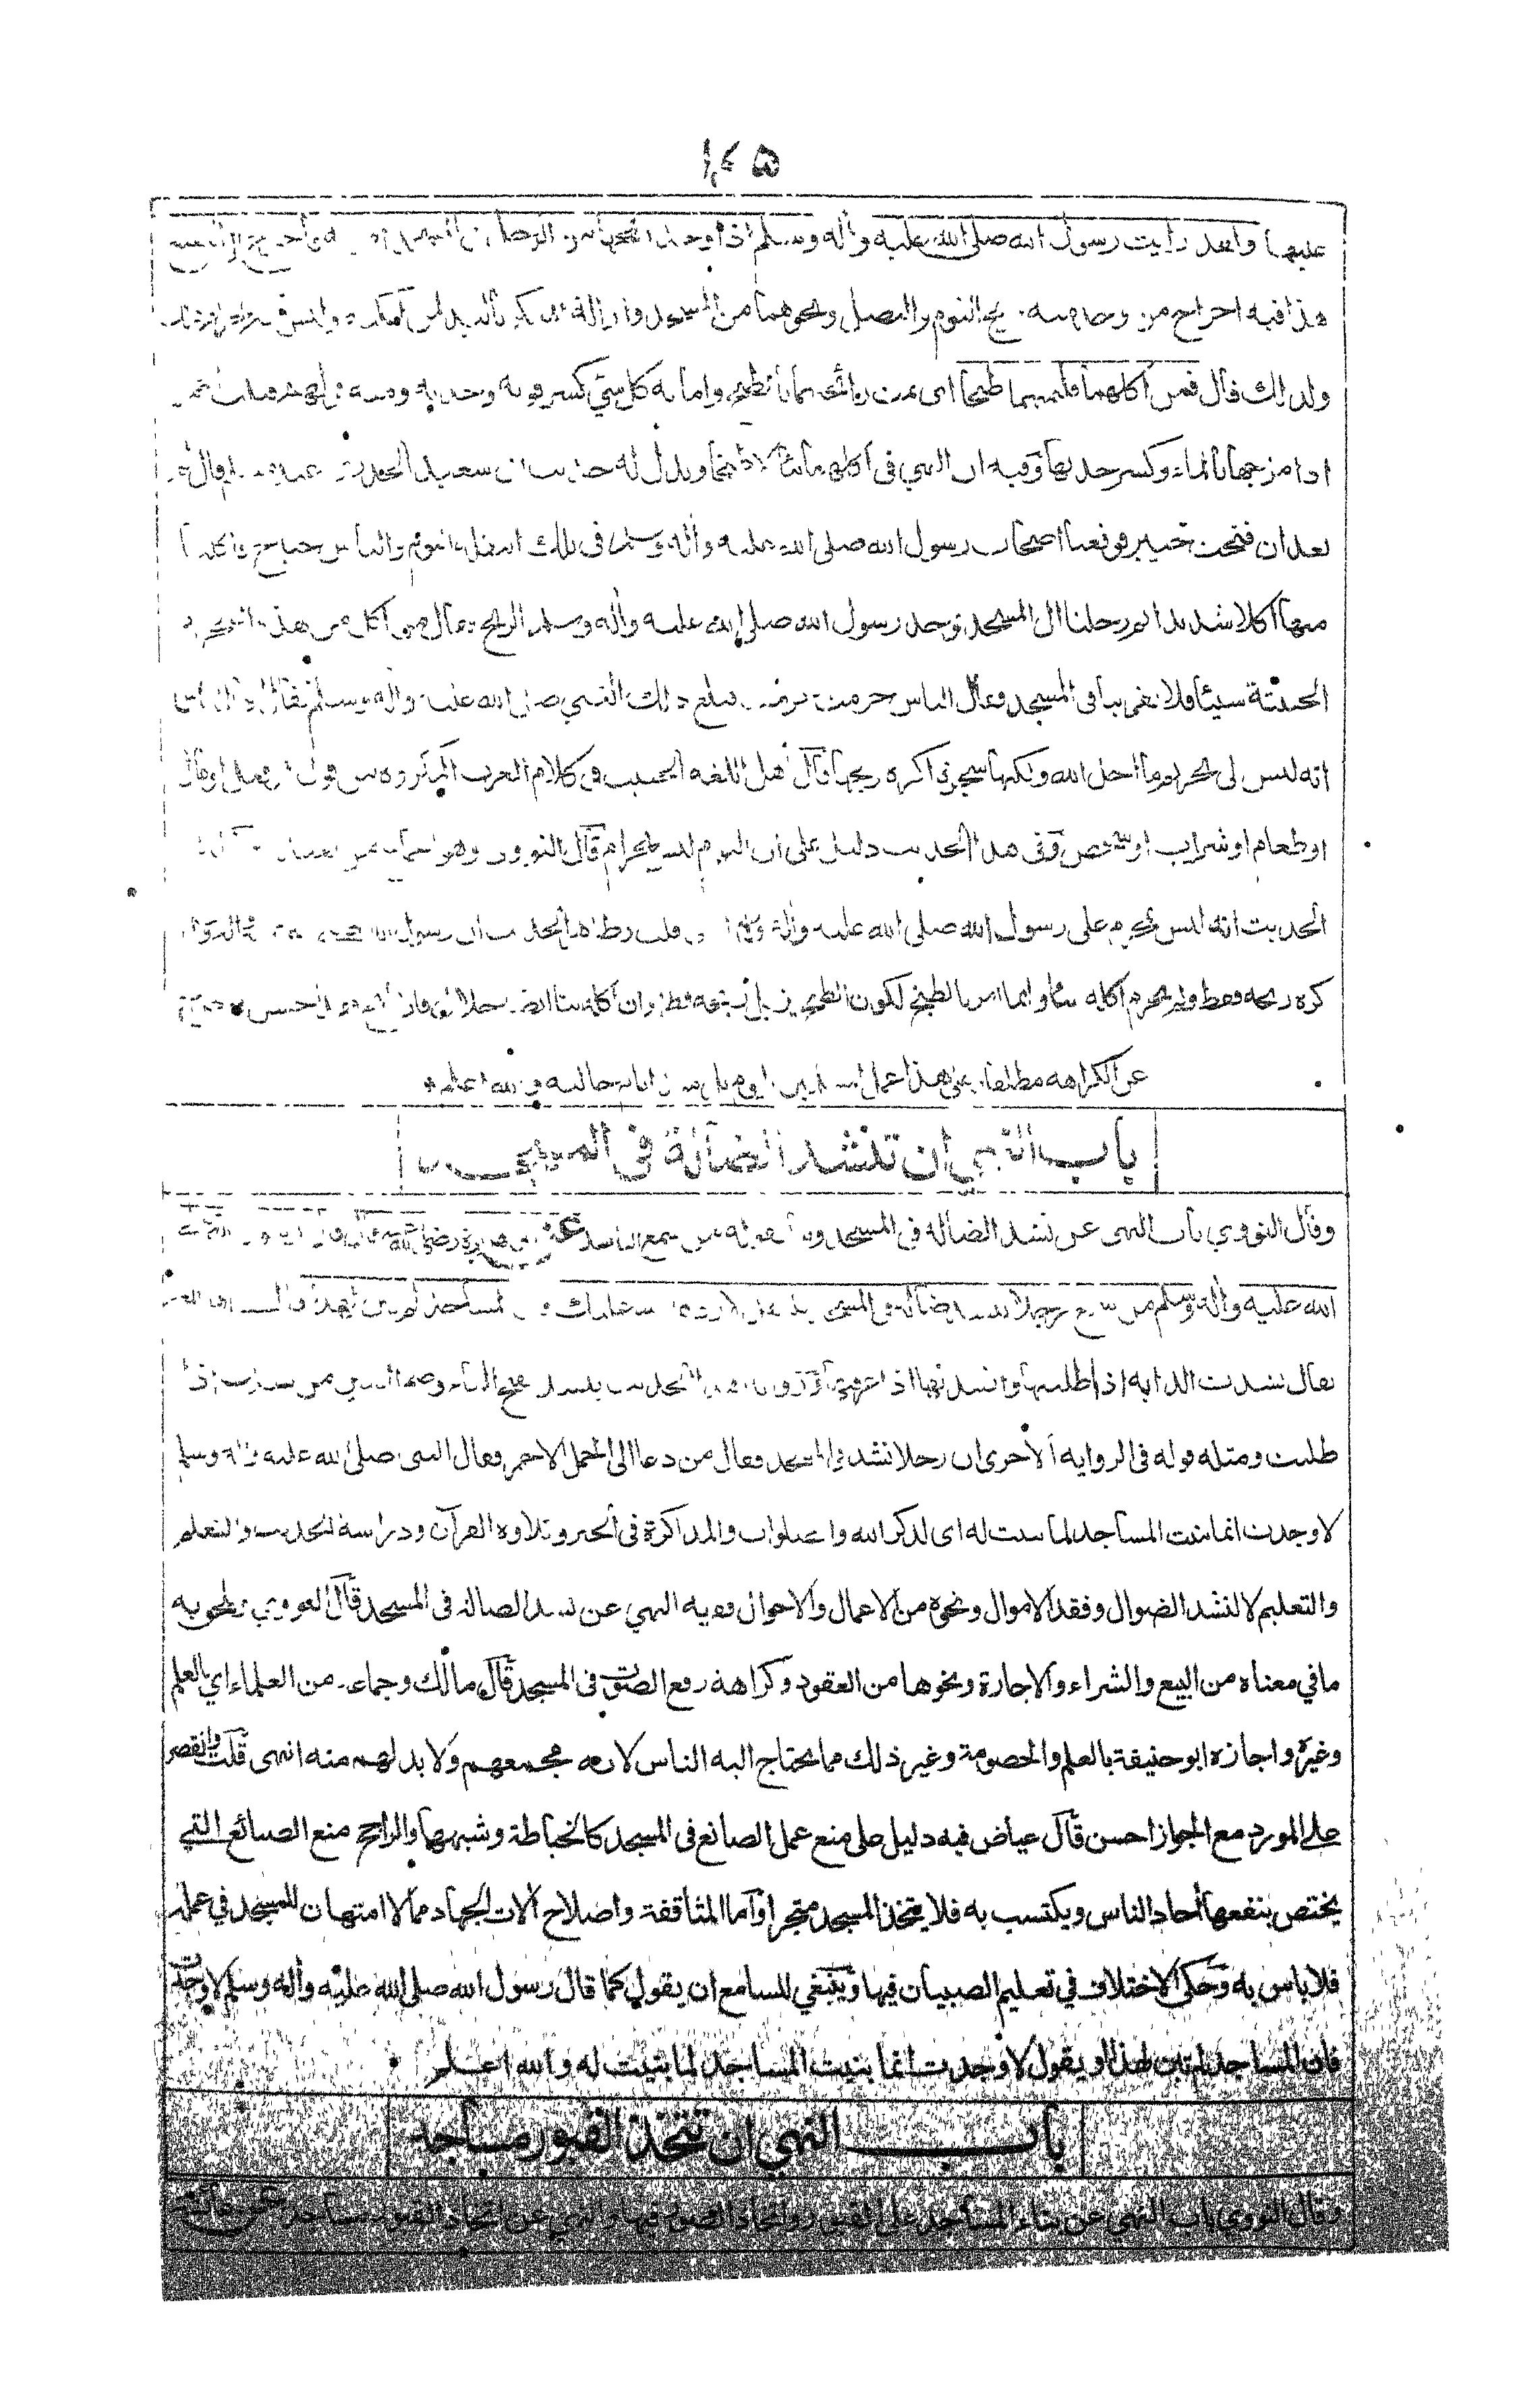 ١٤٥
عليها ولقد رأيت رسول الله صلى الله عليه وأله وسلم اذا وجد ريحهما من الرجل في المسجد
هذا فيه اخراج من وجد منه ريح الثوم والبصل ونحوهما من المسجد وازالة المنكر باليد لمن امكنه
ولذلك قال فمن أكلهما فليمتهما طبخا اى يمت رائحتهما بالطبخ واماتة كل شئ كسر قوته وحدته ومنه قولهم قتلت الخمر
اذا مزجها بالماء وكسر حدتها وفيه ان النهي في أكلهما نيئا لا طبخا ويدل له حديث ابي سعيد الخدري عند مسلم قال لم
نعد ان فتحت خيبر فوقعنا اصحاب رسول الله صلى الله عليه وأله وسلم فى تلك البقلة الثوم والناس جياع فاكلنا
منها أكلا شديدا ثم رحنا الى المسجد فوجد رسول الله صلى الله عليه وأله وسلم الريح فقال من أكل من هذه الشجرة
الخبيثة شيئا فلا يقربنا فى المسجد فقال الناس حرمت حرمت فبلغ ذلك النبي صلى الله عليه واله وسلم فقال يا ايها الناس
انه ليس لى تحريم ما احل الله ولكنها شجرة اكره ريحها قال اهل اللغة الخبيث فى كلام العرب المكروه من قول او فعل او مال
او طعام او شراب او شخص وفى هذا الحديث دليل على ان الثوم ليس بحرام قال النووي وهو اجماع من يعتد به
الحديث انه ليس بمحرم على رسول الله صلى الله عليه وأله وسلم قلت وظاهر الحديث ان رسول الله
كره ريحه فقط ولم يحرم أكله
عن الكراهة مطلقا وعلى هذا عمل والله اعلم
باب النهي ان تنشد الضآلة فى المسجد
وقال النووي باب النهى عن نشد الضالة في المسجد وما يقوله من سمع الناشد عن ابى هريرة رضي الله عنه قال قال رسول الله صلى
الله عليه وأله وسلم من سمع رجلا ينشد ضالة فى المسجد فليقل لا ردها الله عليك فان المساجد لم تبن لهذا
يقال نشدت الدابة اذا طلبتها وانشدتها اذا عرفتها وروايه هذا الحديث ينشد بفتح الياء وضم الشين من نشدت اذا
طلبت ومثله قوله فى الرواية الأخرى ان رجلا نشد فى المسجد فقال من دعا الى الجمل الاحمر فقال النبى صلى الله عليه وأله وسلم
لا وجدت انما بنيت المساجد لما بنيت له اى لذكر الله والصلوات والمذاكرة فى الخير وتلاوة القرآن ودراسة الحديث والتعلم
والتعليم لا لنشد الضوال وفقد الاموال ونحوه من الاعمال والاحوال وفيه النهي عن نشد الضالة فى المسجد قال النووي ويلحق به
مافي معناه من البيع والشراء والاجارة ونحوها من العقود وكراهة رفع الصوت فى المسجد قال مالك وجماعة من العلماء اي بالعلم
وغيره واجازه ابو حنيفة بالعلم والخصومة وغير ذلك مما يحتاج اليه الناس لانه مجمعهم ولا بد لهم منه انتهى قلت والقصر
على المورد مع الجواز احسن قال عياض فيه دليل على منع عمل الصانع فى المسجد كالخياطة وشبهها والراجح منع الصنائع التي
يختص بنفعها أحاد الناس ويكتسب به فلا يتخذ المسجد متجرا وأما المثاقفة واصلاح ألات الجهاد مما لا امتهان للمسجد في عمله
فلا باس به وحكى الاختلاف في تعليم الصبيان فيها وينبغي للسامع ان يقول كما قال رسول الله صلى الله عليه وأله وسلم لا وجدت
فان المساجد لم تبن لهذا او يقول لا وجدت انما بنيت المساجد لما بنيت له والله اعلم
باب النهي ان تتخذ القبور مساجد
وقال النووي باب النهي عن بناء المساجد على القبور واتخاذ الصور فيها والنهي عن اتخاذ القبور مساجد عن عائشة